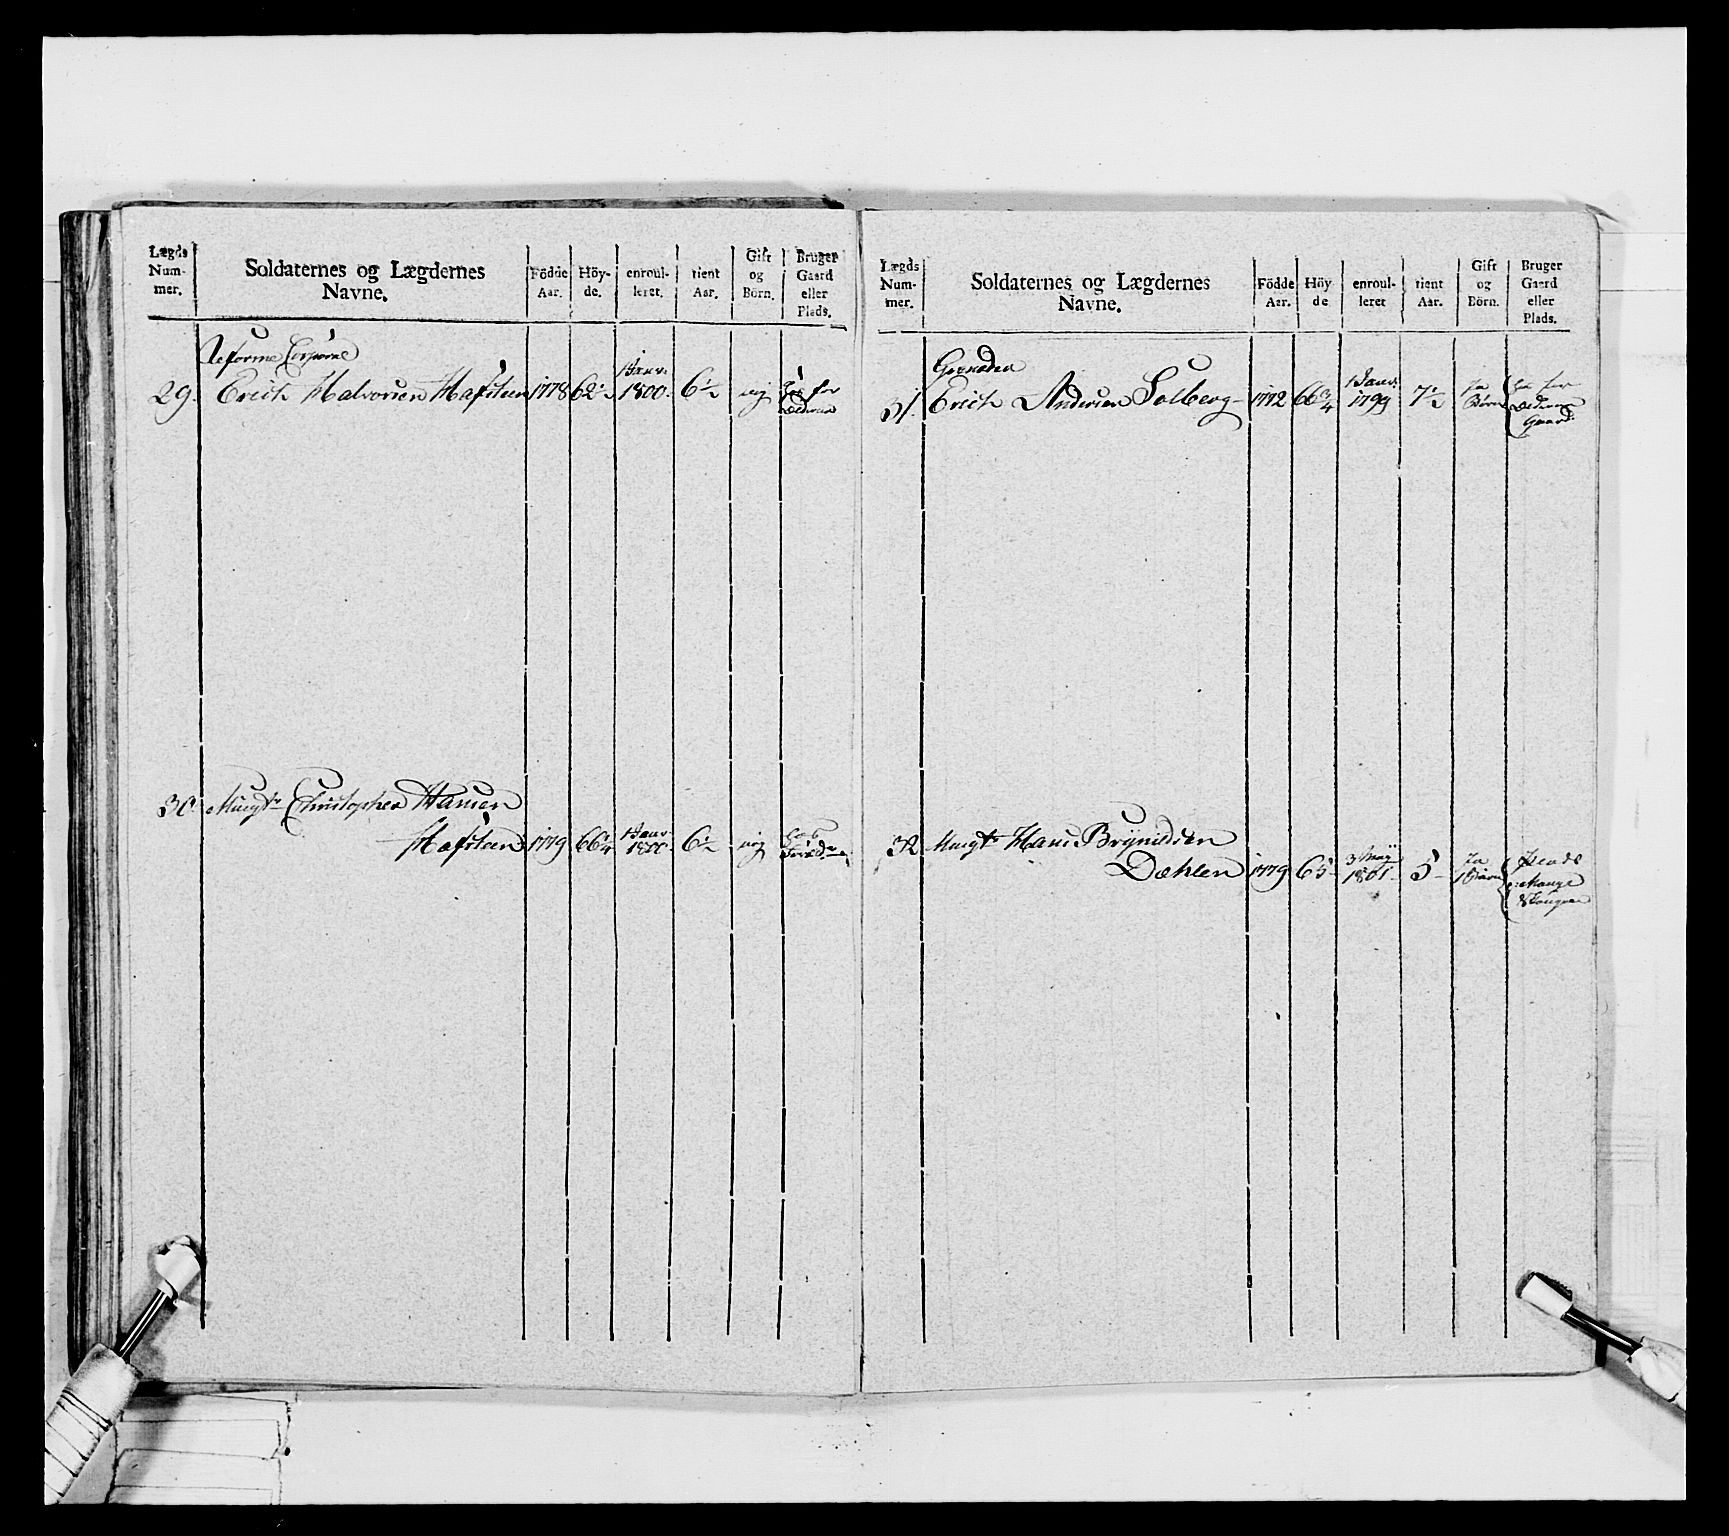 Lægds Num- mer.
Soldaternes og Lægdernes Navne.
Födde Aar.
Höy- de.
enroul- leret.
tient Aar.
Gift og Börn.
Bruger Gaard eller Plads.
Reforme Corporal
29. Erich Halvorsen Hafsteen 1778 62½ Janv. 1800. 6½ nej hos for
30. Musqt. Christopher Hansen
Hafsteen 1779 66¼ Janv. 1800 6½ nej
Lægds Num- mer.
Soldaternes og Lægdernes Navne.
Födde Aar.
Höy de
enroul- leret
tient Aar.
Gift og Börn.
Bruger Gaard eller Plads.
Grenadeer
31. Erich Andersen Solberg 1772 66¾ Janv. 1799 7½ ja Børn
Gaard
32 Musqt. Hans Brÿnildsen
Dæhlen 1779 65 3 Maÿ 1801 5 Ja